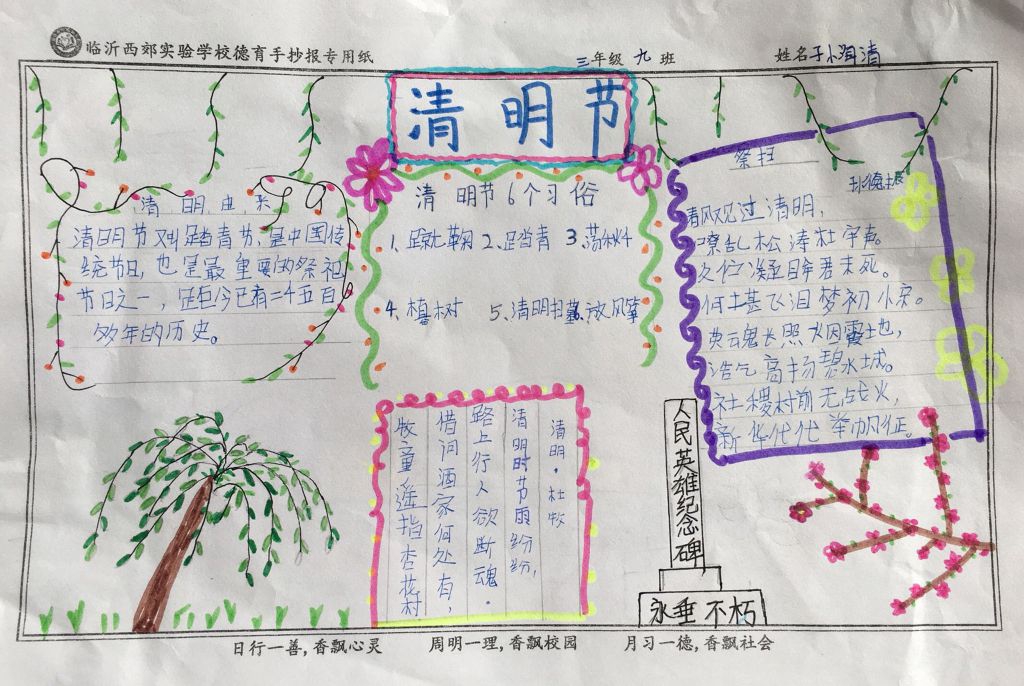 临沂西郊实验学校德育手抄报专用纸
三年级 九 班
姓名
清 明 节
清 明 由 来
清明节又叫踏青节,是中国传
统节日,也是最重要的祭祀
节日之一,距今已有二千五百
多年的历史。
清 明节6个习俗
1、蹴鞠 2、踏青 3、荡秋千
4、植树 5、清明扫墓 6、放风筝
祭扫
清风观过清明,
嘹乱松涛杜宇声。
久位凝目降君未死。
何土基飞泪梦初
英云鬼长照
浩气高扬碧水城。
社稷村前无战火,
新华代代举帆征。
清明·杜牧
清明时节雨纷纷,
路上行人欲断魂。
借问酒家何处有,
牧童遥指杏花村
人民英雄纪念碑
永垂不朽
日行一善,香飘心灵 周明一理,香飘校园 月习一德,香飘社会